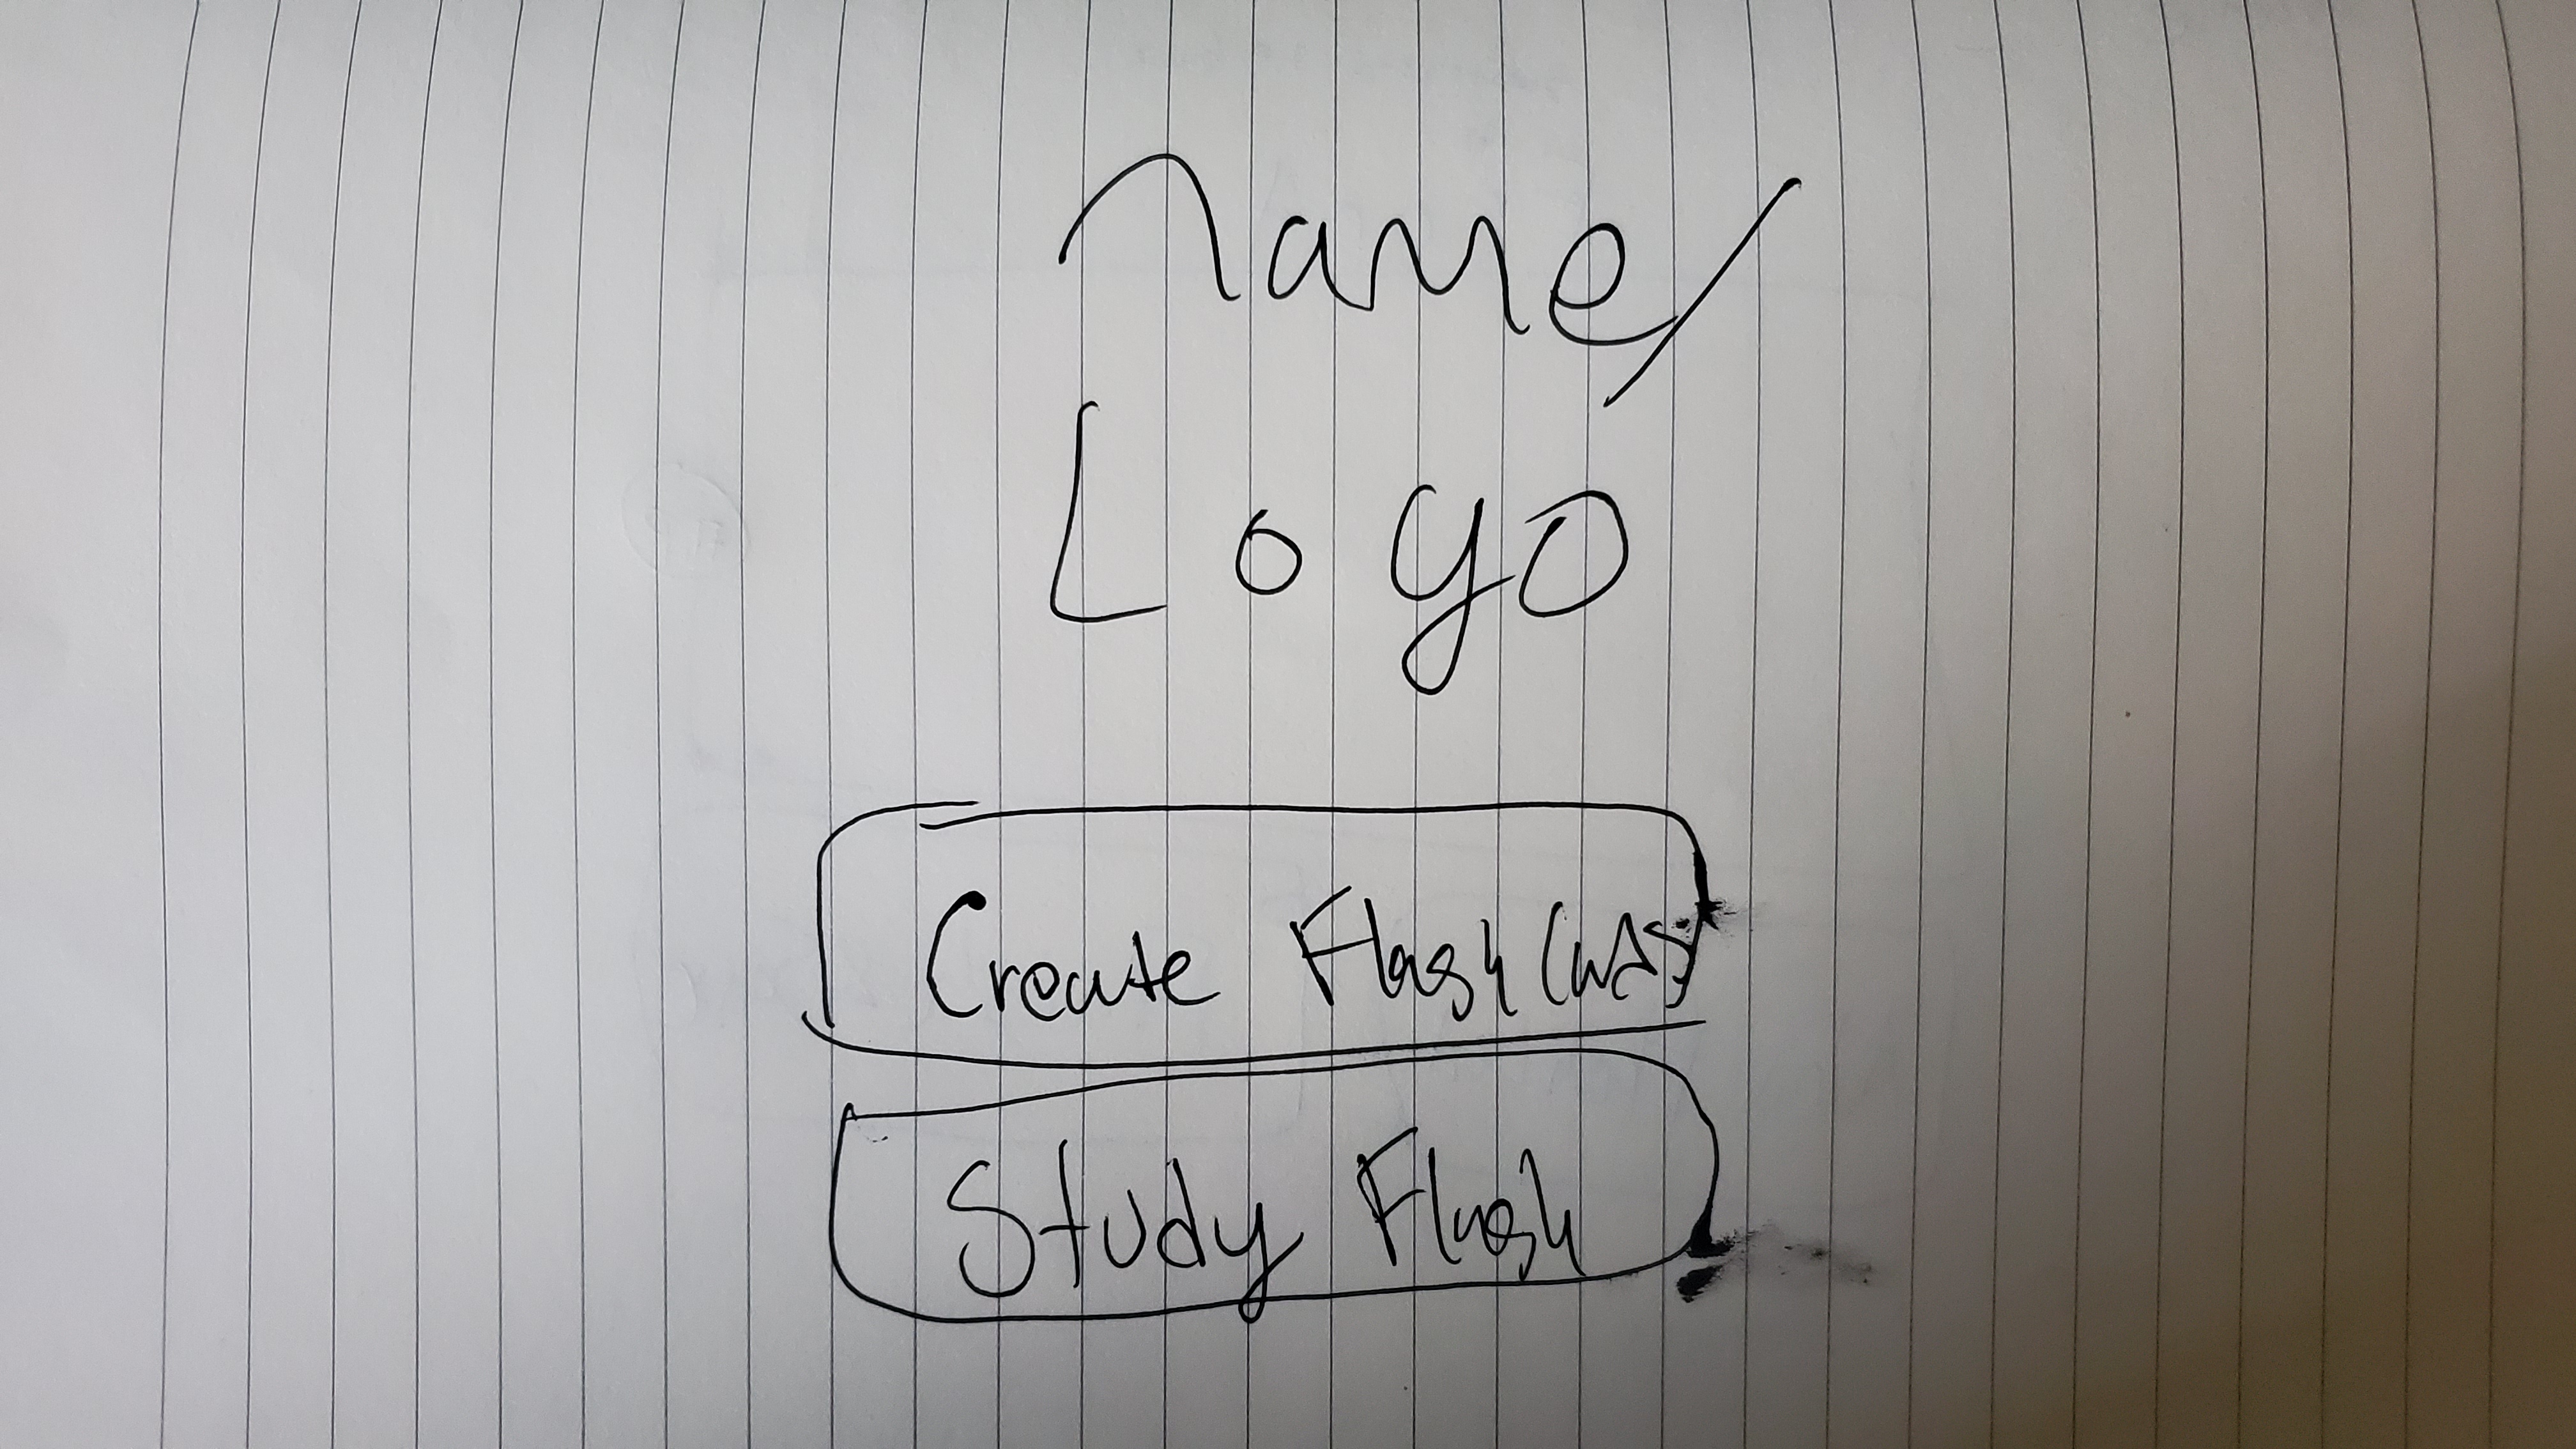 Name/
Logo
Create Flash Cards
Study Flash